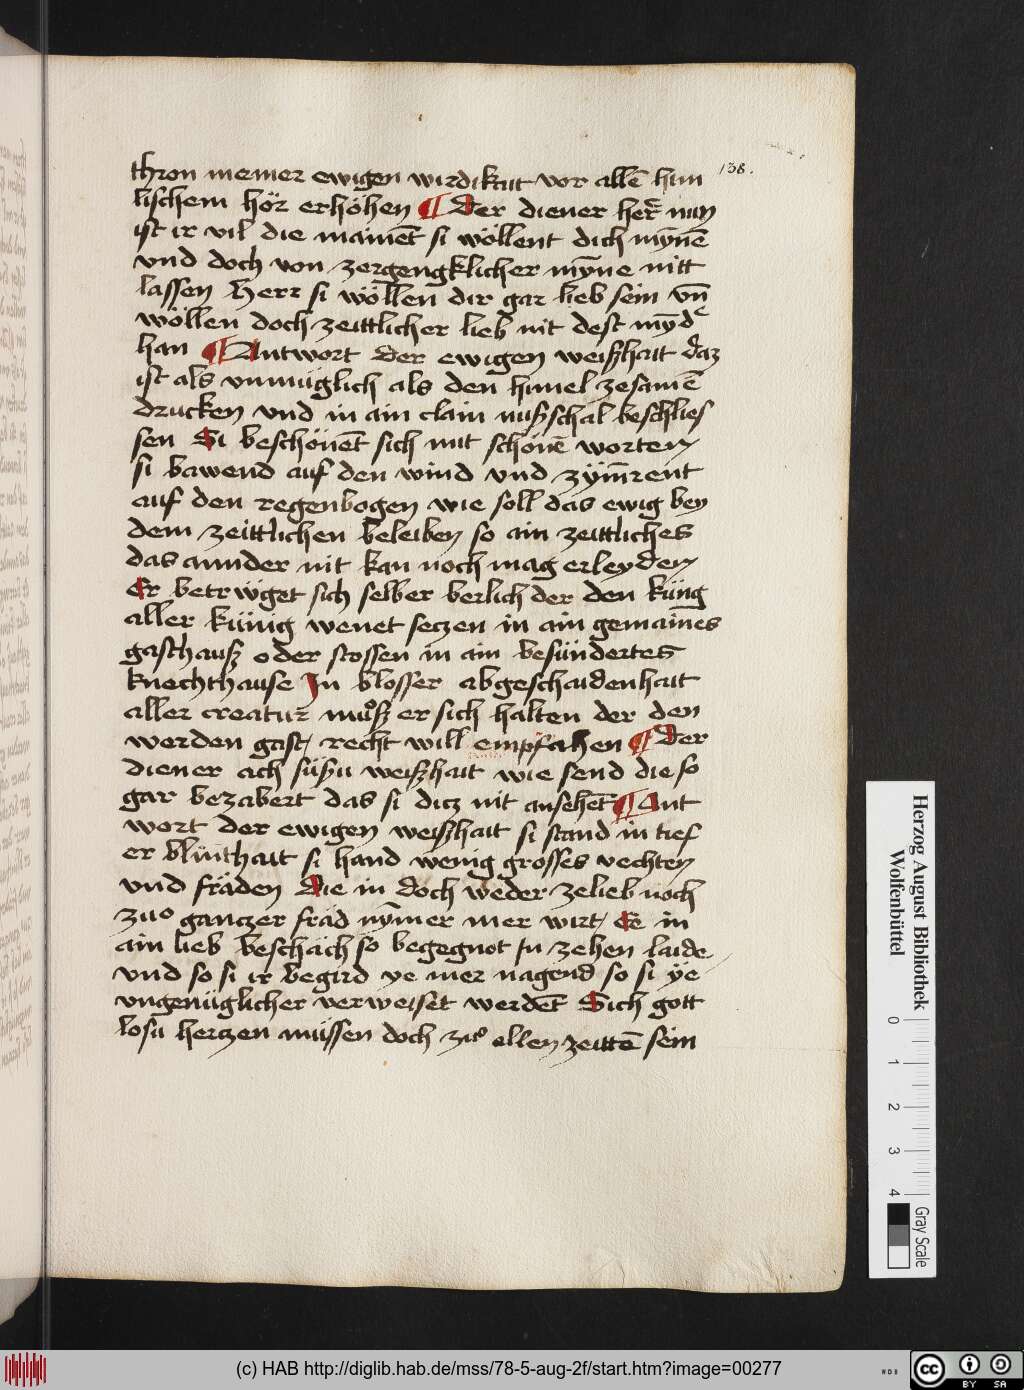 138.
thron meiner ewigen wirdikait vor allē him
lischem hör erhöhen ¶ Der diener her̄ nun
ist ir vil die mainēt si wöllent dich mӯnē
vnd doch von zergengklicher mӯne nitt
lassen Herr si wöllen dir gar lieb sein vn̄
wöllen doch zeittlicher lieb nit dest mӯdˀ
han ¶ Antwort der ewigen weißhait daz
ist als vnmüglich als den himel zesamē
drucken vnd in ain clain nußschal beschlies
sen Si beschönēt sich mit schönē worten
si bawend auf den wind vnd zӯm̄rent
auf den regenbogen wie soll das ewig bey
dem zeittlichen beleiben so ain zeittliches
das annder nit kan noch mag erleyden
Er betrwget sich selber berlich der den küng
aller künig wenet seczen in ain gemaines
gasthauß oder stossen in ain besündertes
knechthause In blosser abgeschaidenhait
aller creatur muͦß er sich halten der den
werden gast recht will empfahen ¶ Der
diener ach süssu weißhait wie send die so
gar bezabert das si dicz nit ansehēt ¶ Ant
wort der ewigen weißhait si stand in tief
er blinthait si hand wenig grosses vechten
vnd fräden Die in doch weder zelieb noch
zuo ganczer fräd nӯmer mer wirt Ee in
ain lieb beschäch so begegnot In zehen laide
vnd so si ir begird ye mer nagend so si ÿe
vngenüglicher verweiset werdēt Sich gott
losu herczen müssen doch zuͦ allen zeittē sein
Herzog August Bibliothek
Wolfenbüttel
0 1 2 3 4
Gray Scale
(c) HAB http://diglib.hab.de/mss/78-5-aug-2f/start.htm?image=00277
cc BY SA